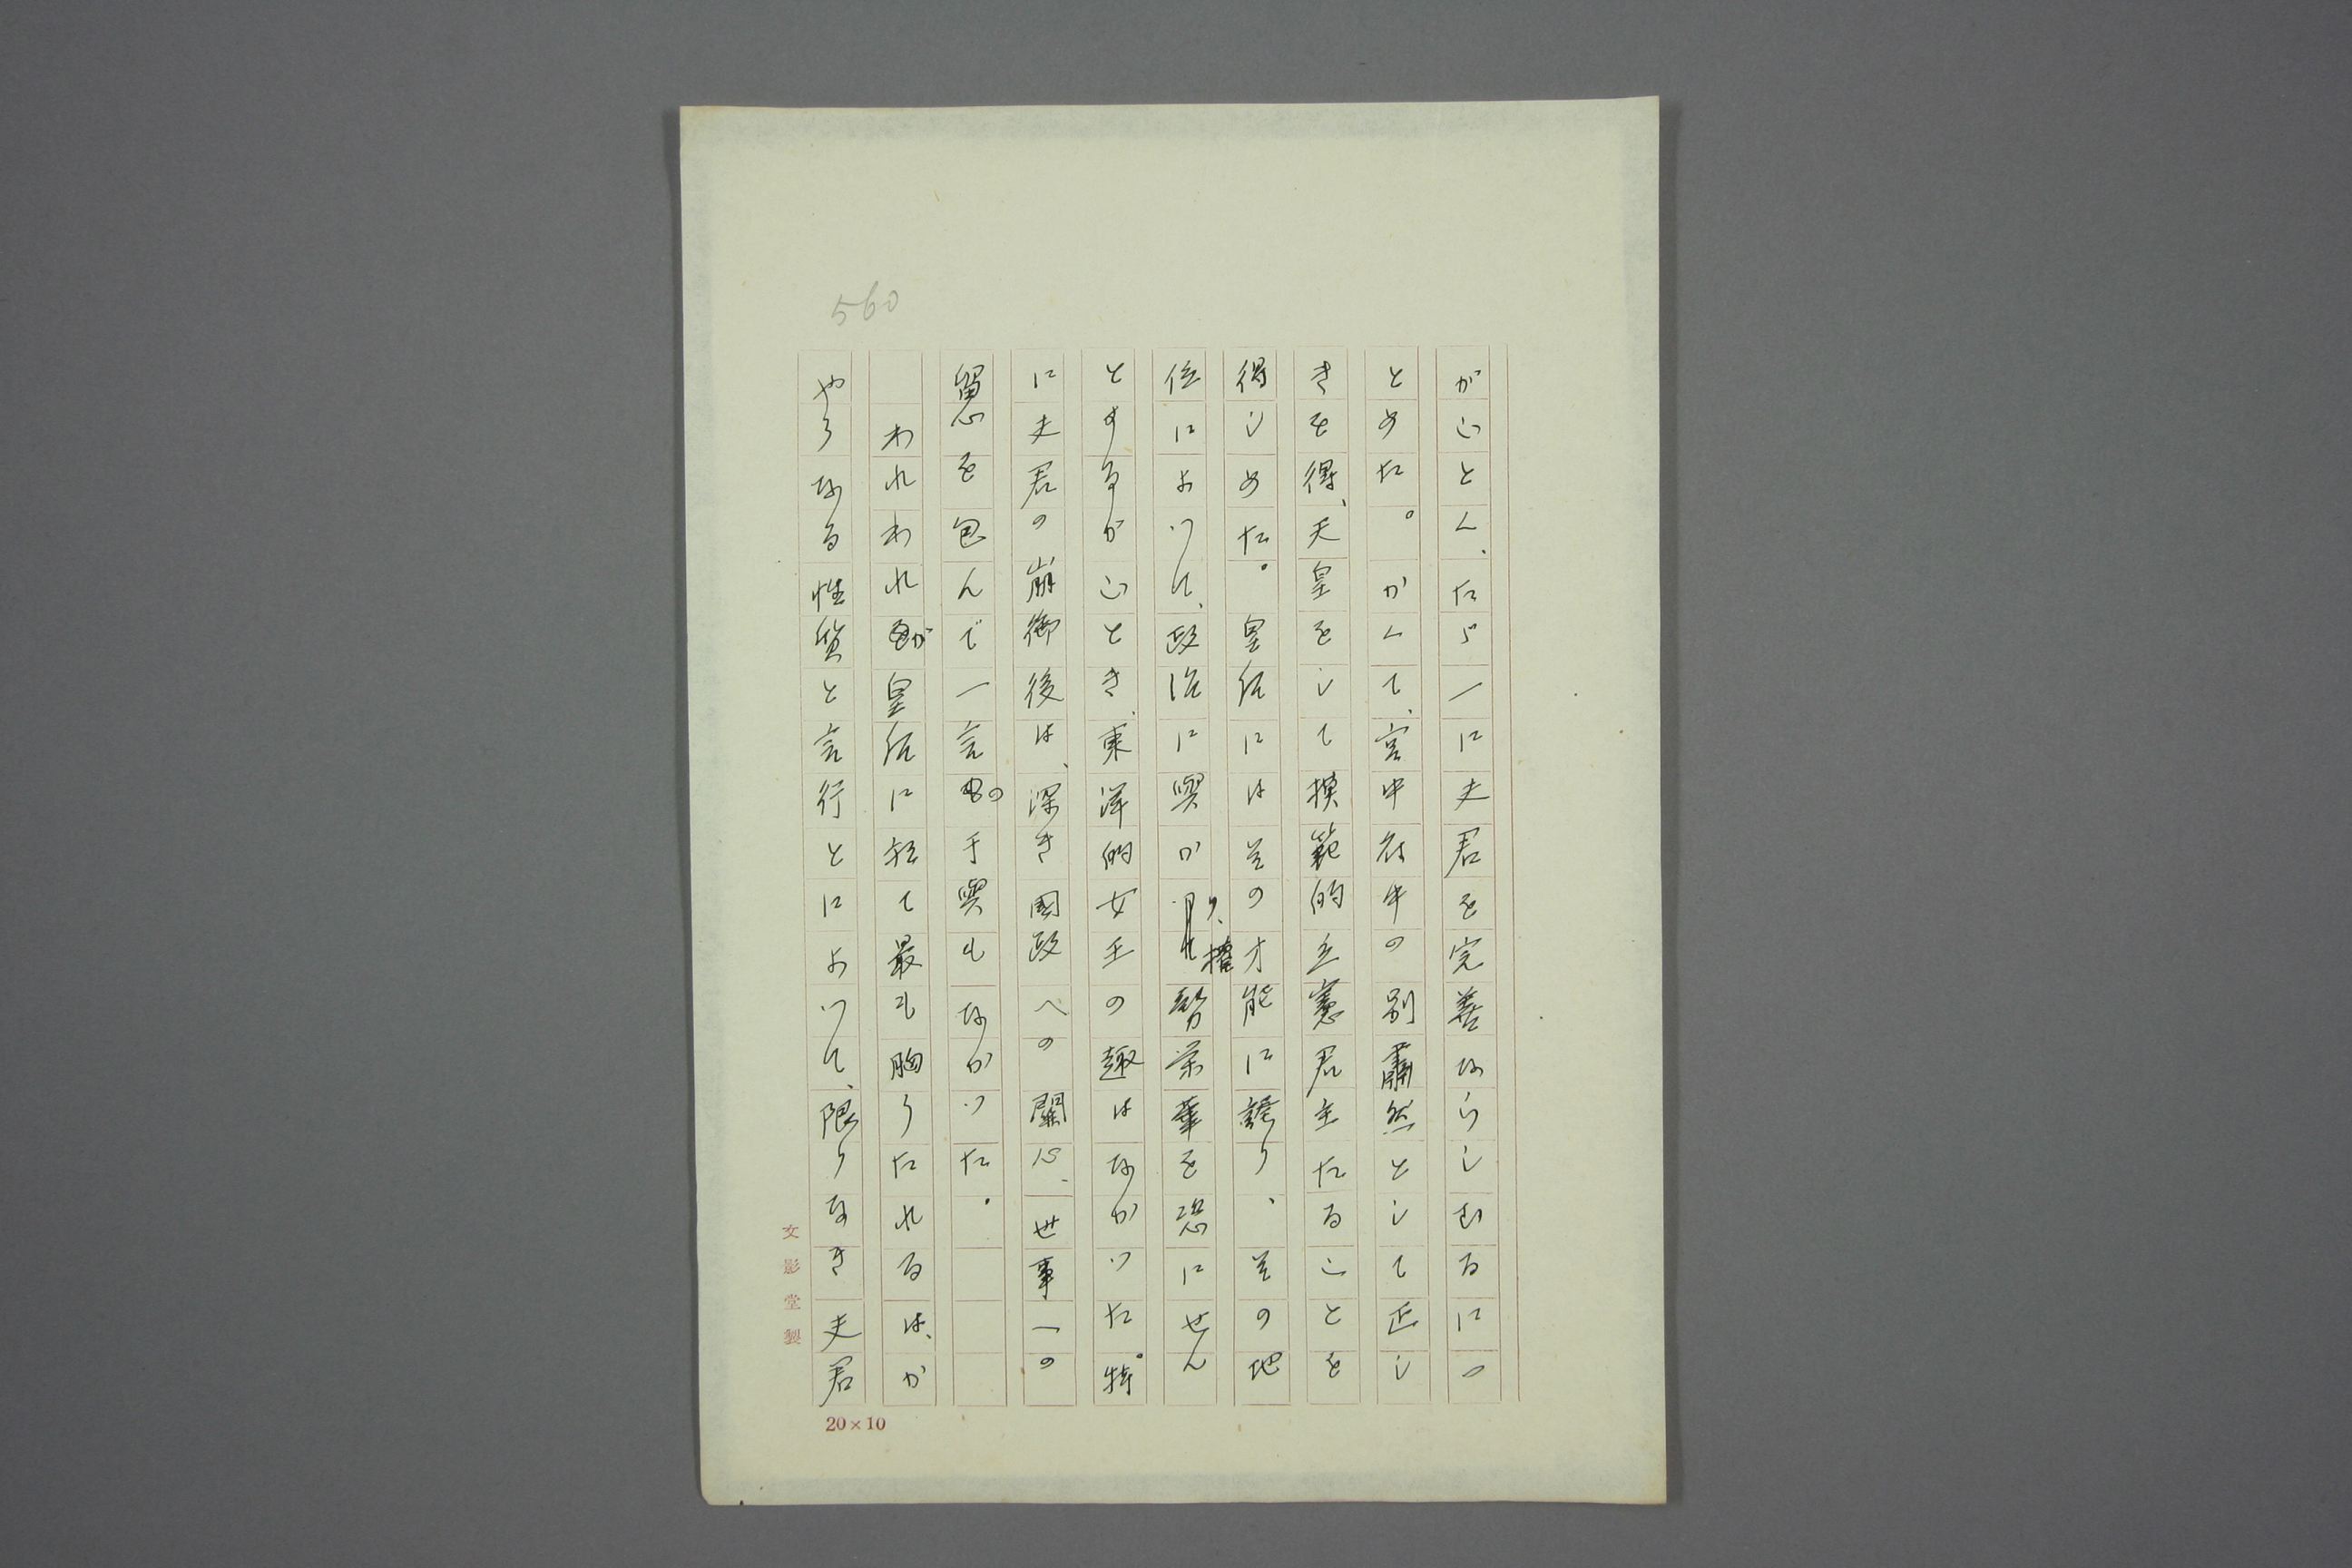 560
がごとく、たゞ一に夫君を完善ならしむるにつ
とめた。かくて、宮中衣冠の別肅然として正し
きを得、天皇をして模範的立憲君主たることを
得しめた。皇后にはその才能に誇り、その地
位によつて、政治に与かり、権勢栄華を恣にせん
とするがごとき、東洋的女王の趣はなかつた。特
に夫君の崩御後は、深き国政への関心、世事一の
智恵を包んで一言の干与もなかつた。
われわれが皇后に於て最も胸うたれるは、か
やうなる性質と言行とによつて、限りなき夫君
文影堂製
20×10